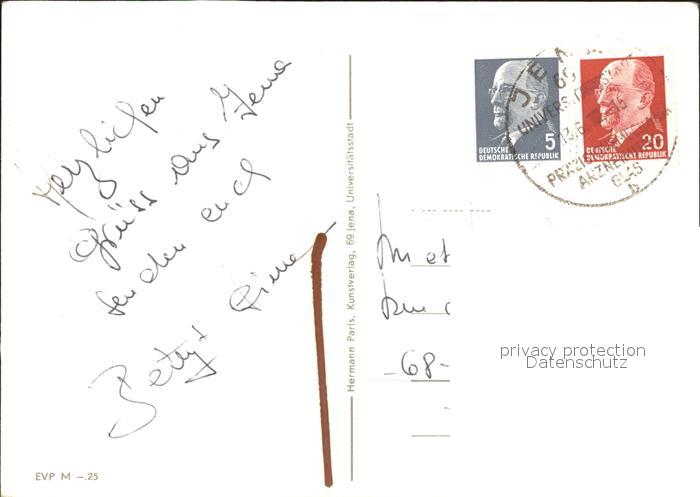 Herzlichen
Grüss aus Jena
senden euch
Betty +
Hermann Paris, Kunstverlag, 69 Jena, Universitätsstadt
EVP M –.25
DEUTSCHE
DEMOKRATISCHE REPUBLIK
5
DEUTSCHE
DEMOKRATISCHE REPUBLIK
20
JENA
69
UNIVERSITÄTS
13.6.
PRÄZI
ARZNEIMI
GLAS
b
-68-
privacy protection
Datenschutz